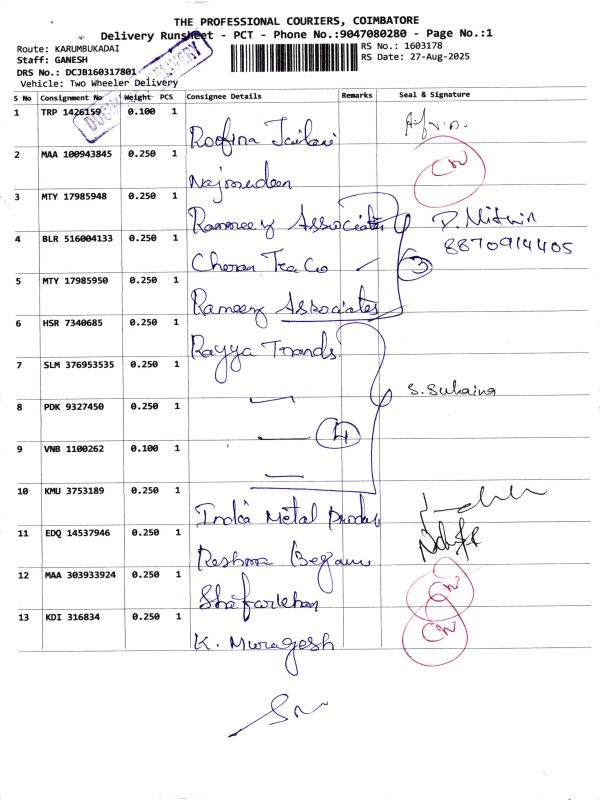 THE PROFESSIONAL COURIERS, COIMBATORE
Delivery Runsheet - PCT - Phone No.:9047080280 - Page No.:1
Route: KARUMBUKADAI
RS No.: 1603178
Staff: GANESH
RS Date: 27-Aug-2025
DRS No.: DCJB160317801
Vehicle: Two Wheeler Delivery
S No Consignment No Weight PCS Consignee Details Remarks Seal & Signature
1 TRP 1426159 0.100 1 Roofina Jailani
2 MAA 100943845 0.250 1 Najmudeen CN
3 MTY 17985948 0.250 1 Rameez Associates D. Nitwin
8870914405
4 BLR 516004133 0.250 1 Cheran Tea Co 3
5 MTY 17985950 0.250 1 Rameez Associates
6 HSR 7340685 0.250 1 Rayya Trends
7 SLM 376953535 0.250 1 S. Sukaina
8 PDK 9327450 0.250 1
9 VNB 1100262 0.100 1 4
10 KMU 3753189 0.250 1 India Metal Produ
11 EDQ 14537946 0.250 1 Reshma Begam
12 MAA 303933924 0.250 1 Shafarikhan CN
13 KDI 316834 0.250 1 K. Murugesh CN